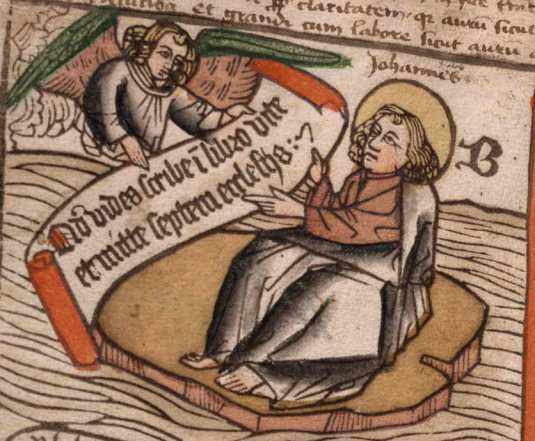 claritatem, qz auru sicut
et grande cum labore sicut auru
Johannes
vides scribe ī libro vite
et mitte septem ecclesijs
B